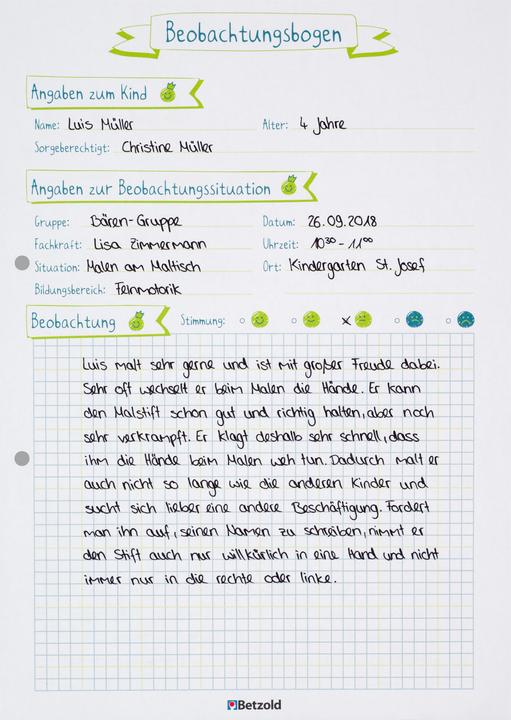 Beobachtungsbogen
Angaben zum Kind
Name: Luis Müller Alter: 4 Jahre
Sorgeberechtigt: Christine Müller
Angaben zur Beobachtungssituation
Gruppe: Bären-Gruppe Datum: 26.09.2018
Fachkraft: Lisa Zimmermann Uhrzeit: 10³⁰ - 11⁰⁰
Situation: Malen am Maltisch Ort: Kindergarten St. Josef
Bildungsbereich: Feinmotorik
Beobachtung Stimmung:
Luis malt sehr gerne und ist mit großer Freude dabei.
Sehr oft wechselt er beim Malen die Hände. Er kann
den Malstift schon gut und richtig halten, aber noch
sehr verkrampft. Er klagt deshalb sehr schnell, dass
ihm die Hände beim Malen weh tun. Dadurch malt er
auch nicht so lange wie die anderen Kinder und
sucht sich lieber eine andere Beschäftigung. Fordert
man ihn auf, seinen Namen zu schreiben, nimmt er
den Stift auch nur willkürlich in eine Hand und nicht
immer nur in die rechte oder linke.
Betzold